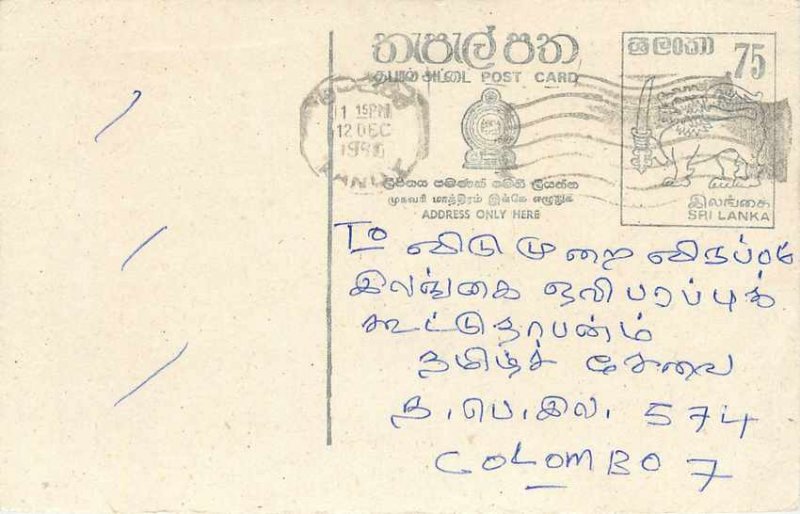 තැපැල් පත
தபால் அட்டை POST CARD
ශ්‍රී ලංකා 75
1 15PM
12 DEC
KANDY
ලිපිනය පමණක් මෙහි ලියන්න
முகவரி மாத்திரம் இங்கே எழுதுக
ADDRESS ONLY HERE
இலங்கை
SRI LANKA
To விடுமுறை விருப்பம்
இலங்கை ஒலிபரப்புக்
கூட்டுதாபனம்
தமிழ்ச் சேவை
த.பெ.இல. 574
COLOMBO 7